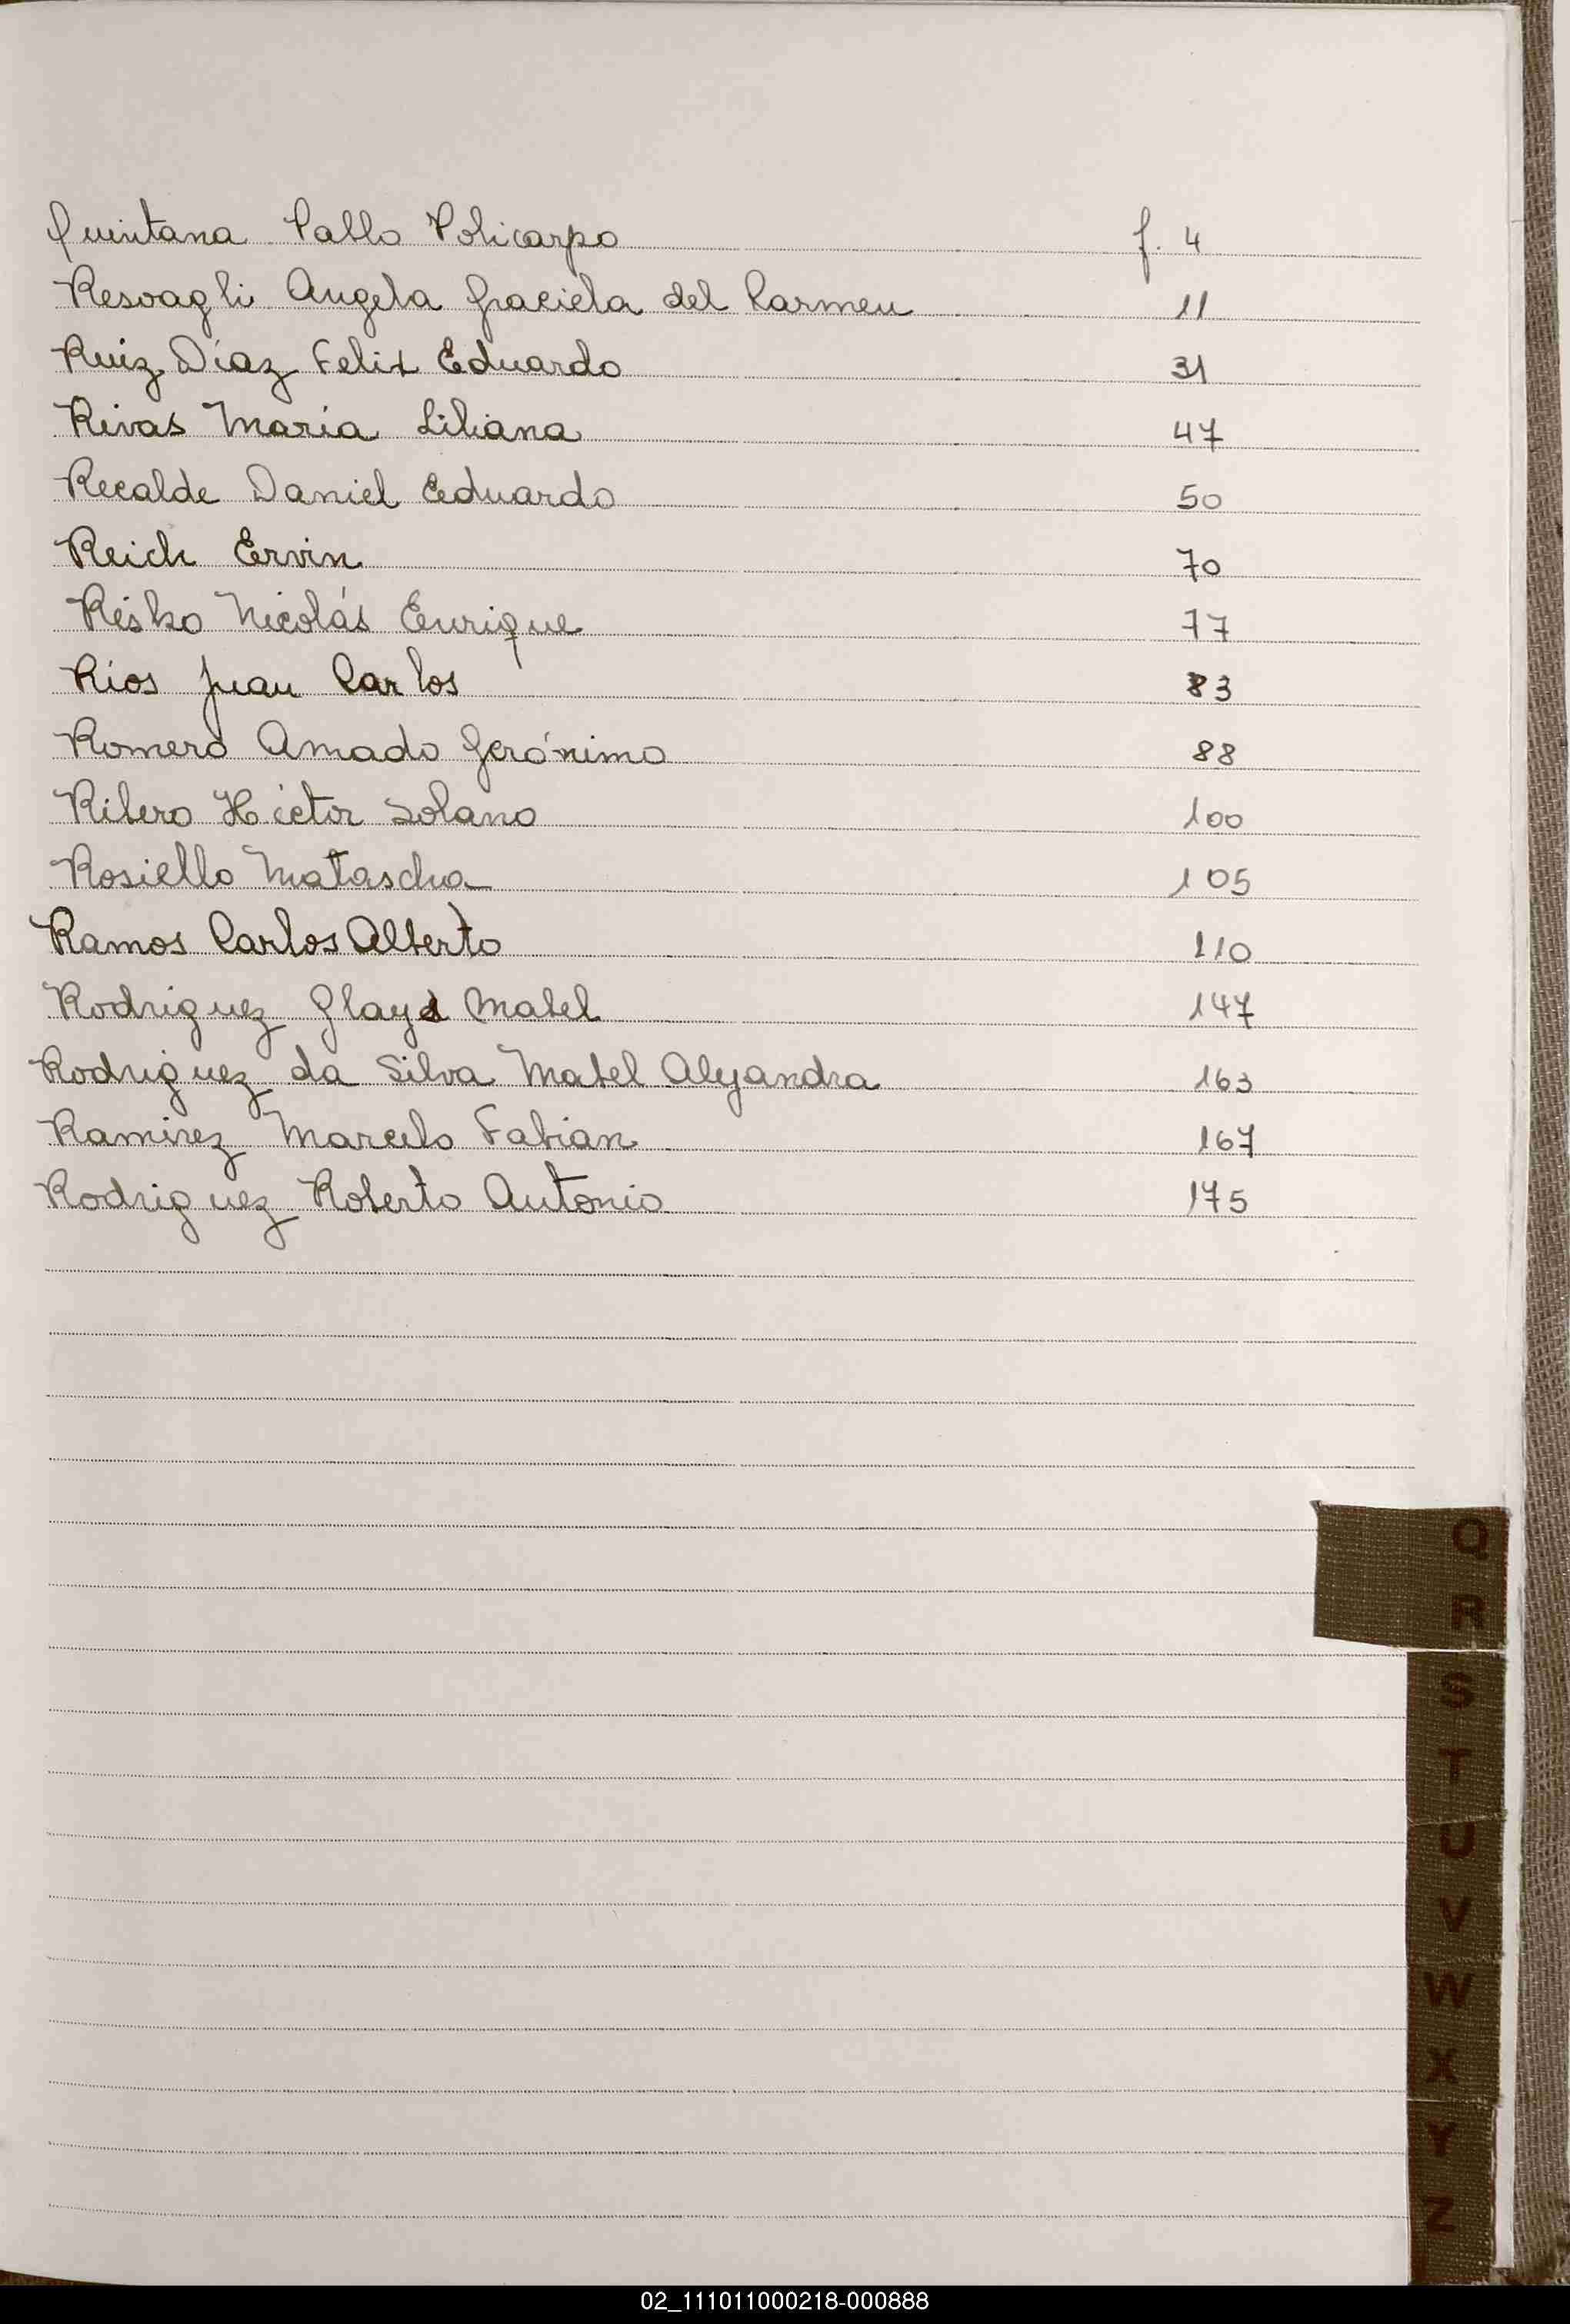 Quintana Pablo Policarpo f. 4
Resoagli Angela Graciela del Carmen 11
Ruiz Díaz Felix Eduardo 31
Rivas María Liliana 47
Recalde Daniel Eduardo 50
Reich Ervin 70
Resko Nicolás Enrique 77
Ríos Juan Carlos 83
Romero Amado Gerónimo 88
Ribero Héctor Solano 100
Rosiello Natascha 105
Ramos Carlos Alberto 110
Rodriguez Glays Mabel 147
Rodriguez da Silva Mabel Alejandra 163
Ramirez Marcelo Fabian 167
Rodriguez Roberto Antonio 175
Q
R
S
T
U
V
W
X
Y
Z
02_111011000218-000888